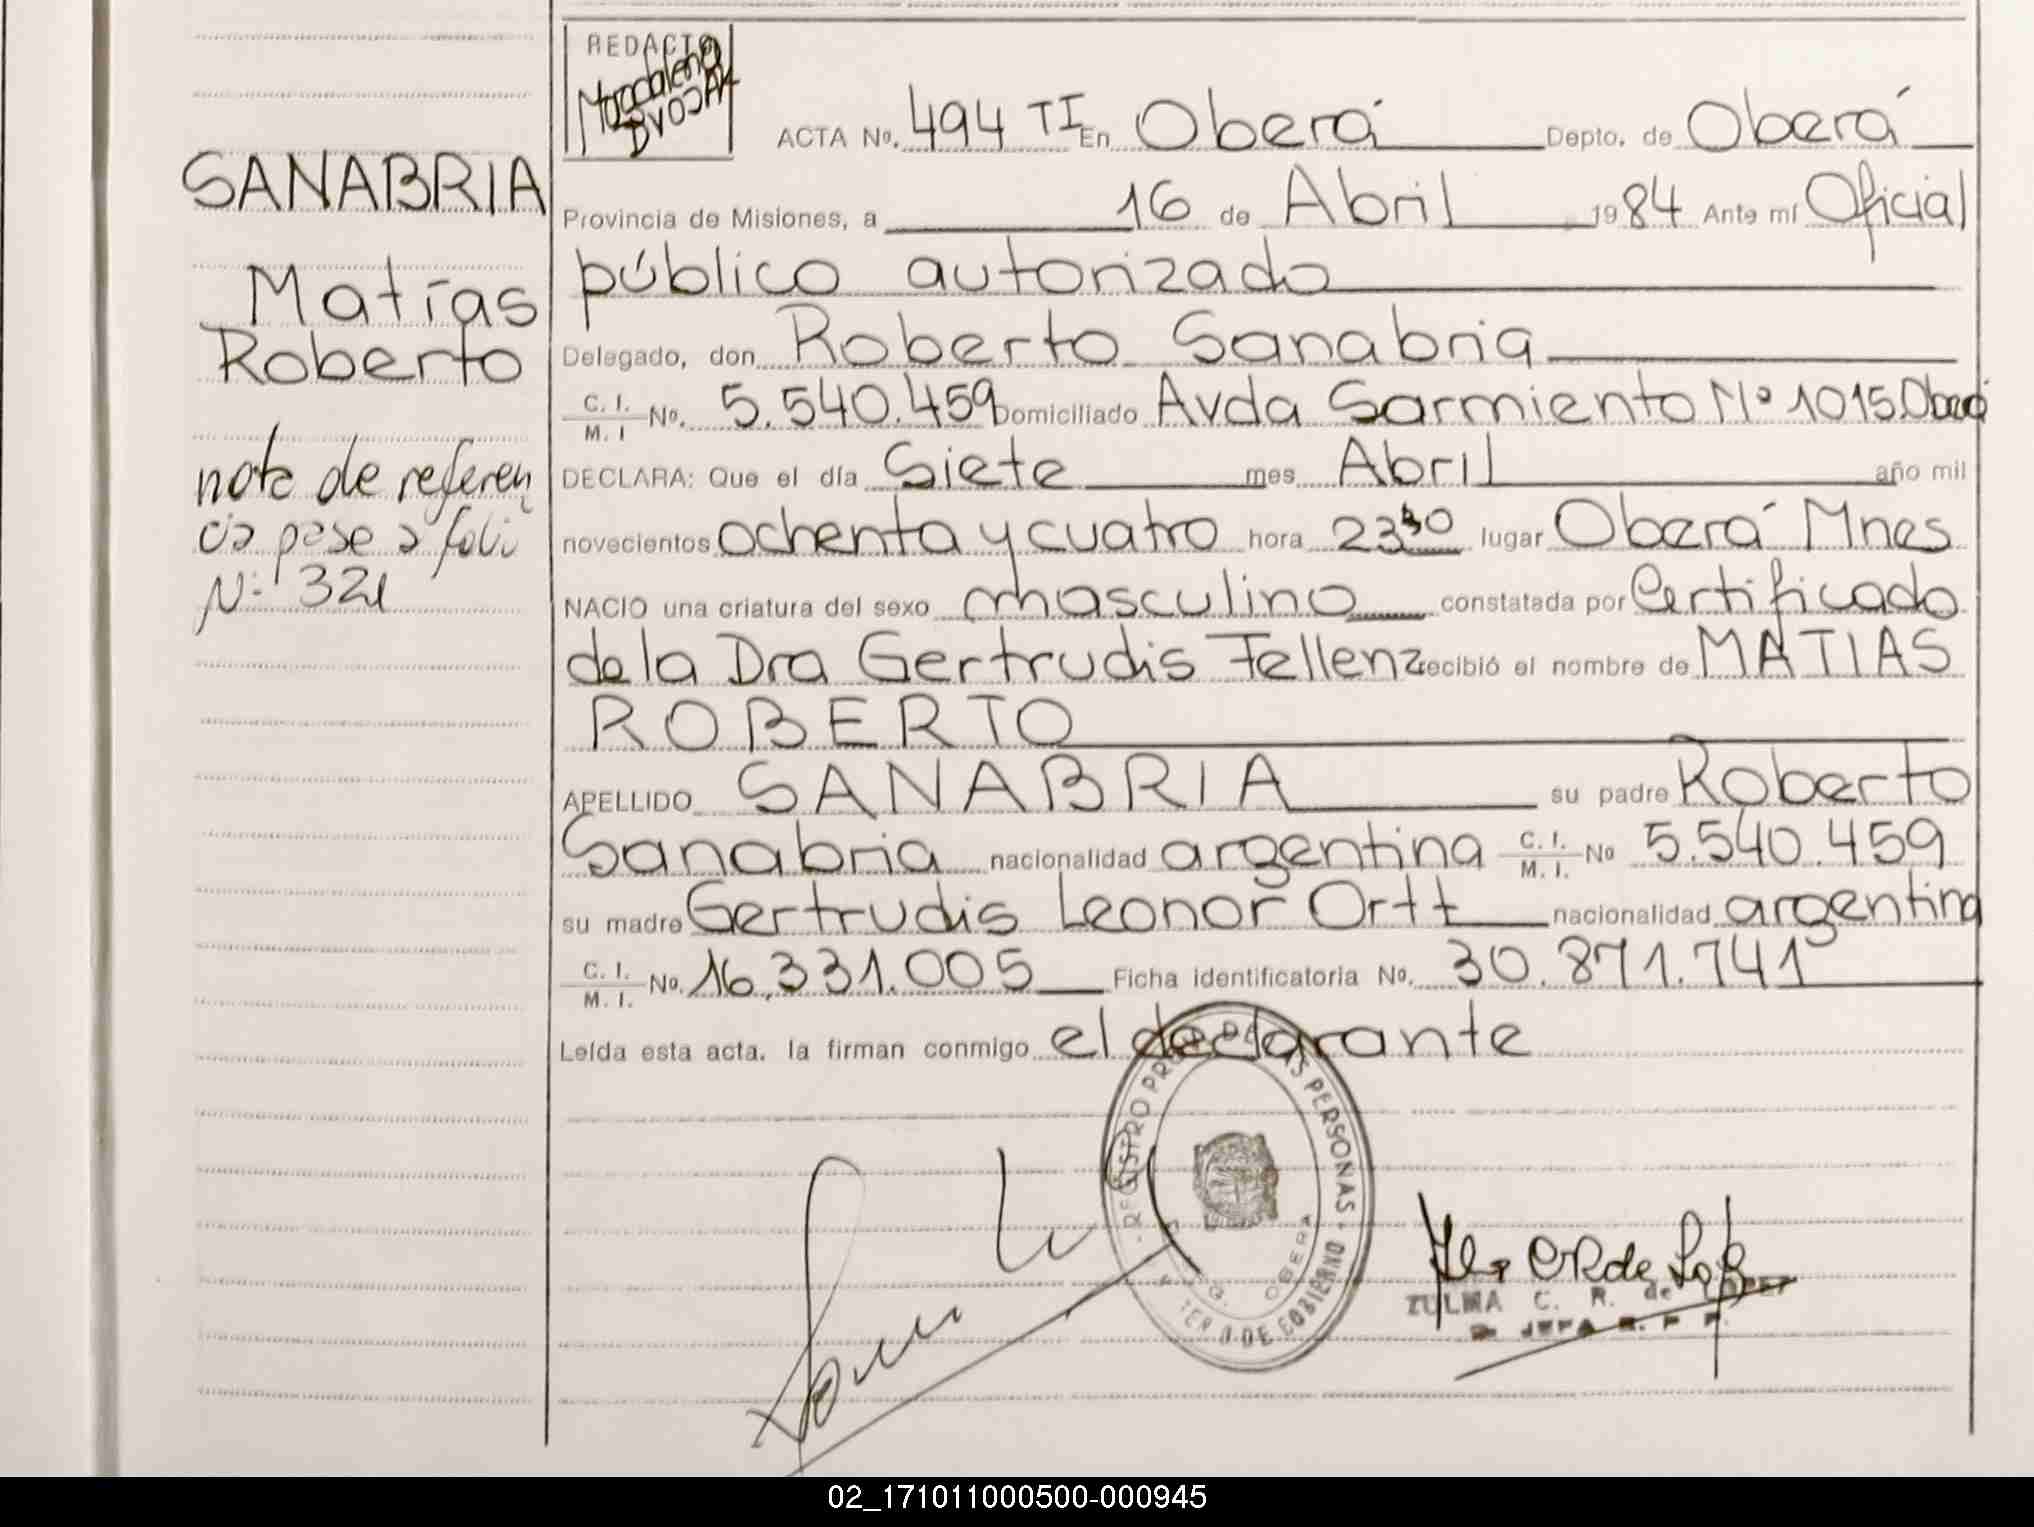 REDACTO
Magdalena
SANABRIA
Matías
Roberto
nota de referen
cia pase a folio
Nº 321
ACTA No. 494 TI En Oberá Depto. de Oberá
Provincia de Misiones, a 16 de Abril 1984 Ante mí Oficial
público autorizado
Delegado, don Roberto Sanabria
C. I. M. I No. 5.540.459 Domiciliado Avda Sarmiento Nº 1015 Oberá
DECLARA: Que el día Siete mes Abril año mil
novecientos ochenta y cuatro hora 23 lugar Oberá Mnes
NACIO una criatura del sexo masculino constatada por Certificado
de la Dra Gertrudis Fellenz recibió el nombre de MATIAS
ROBERTO
APELLIDO SANABRIA su padre Roberto
Sanabria nacionalidad argentina C. I. M. I. No 5.540.459
su madre Gertrudis Leonor Ortt nacionalidad argentina
C. I. M. I. No. 16.331.005 Ficha identificatoria No. 30.871.741
Leída esta acta. la firman conmigo el declarante
REGISTRO DE LAS PERSONAS
DE GOBIERNO
OBERA
ZULMA C. R. de LOPEZ
JEFA R. P. P.
02_171011000500-000945